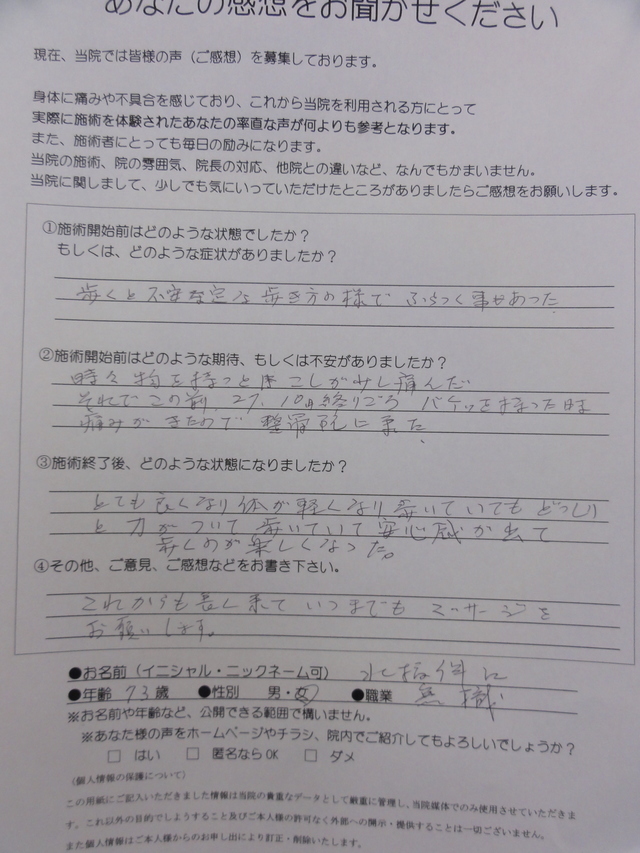 あなたの感想をお聞かせください
現在、当院では皆様の声（ご感想）を募集しております。
身体に痛みや不具合を感じており、これから当院を利用される方にとって
実際に施術を体験されたあなたの率直な声が何よりも参考となります。
また、施術者にとっても毎日の励みになります。
当院の施術、院の雰囲気、院長の対応、他院との違いなど、なんでもかまいません。
当院に関しまして、少しでも気にいっていただけたところがありましたらご感想をお願いします。
①施術開始前はどのような状態でしたか？
もしくは、どのような症状がありましたか？
歩くと不安定な歩き方の様で ふらつく事があった
②施術開始前はどのような期待、もしくは不安がありましたか？
時々物を持つと こしが少し痛んだ
それでこの前、27、10月終りごろ バケツを持った時
痛みがきたので 整骨院に来た
③施術終了後、どのような状態になりましたか？
とても良くなり体が軽くなり歩いていてもどっしり
と力がついて歩いていて安心感が出て
歩くのが楽しくなった。
④その他、ご意見、ご感想などをお書き下さい。
これからも長く来ていつまでもマッサージを
お願いします。
●お名前（イニシャル・ニックネーム可）
●年齢 73歳 ●性別 男・女 ●職業 無職
※お名前や年齢など、公開できる範囲で構いません。
※あなた様の声をホームページやチラシ、院内でご紹介してもよろしいでしょうか？
□ はい □ 匿名ならOK □ ダメ
（個人情報の保護について）
この用紙にご記入いただきました情報は当院の貴重なデータとして厳重に管理し、当院媒体でのみ使用させていただきま
す。これ以外の目的でしようすること及びご本人様の許可なく外部への開示・提供することは一切ございません。
また個人情報はご本人様からのお申し出により訂正・削除いたします。